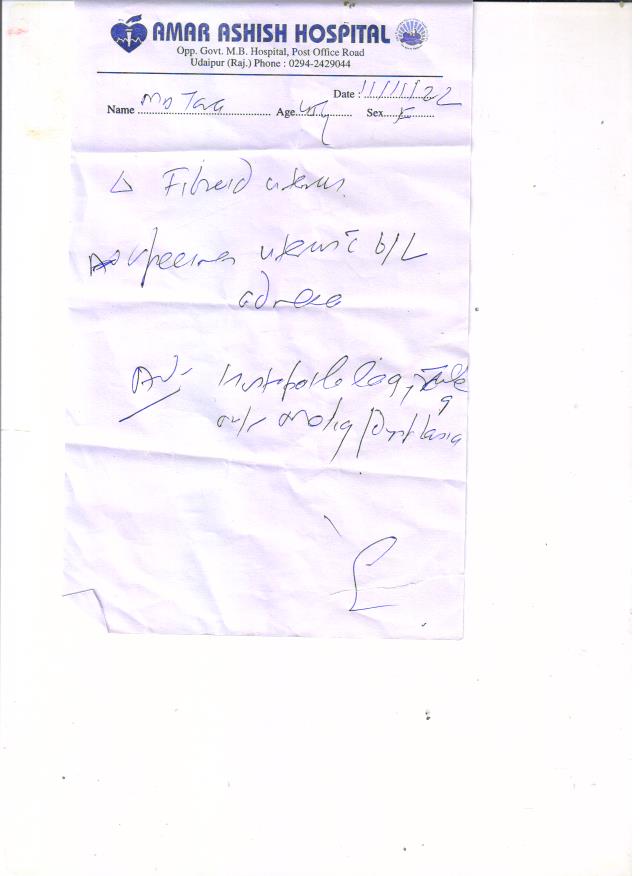 AMAR ASHISH HOSPITAL
Opp. Govt. M.B. Hospital, Post Office Road
Udaipur (Raj.) Phone : 0294-2429044
Date : 11/11/22
Name Age Sex F
Δ Fibroid uterus
specimen uterus c̄ b/L
adnexa
Adv- Histopathology
/Dysplasia